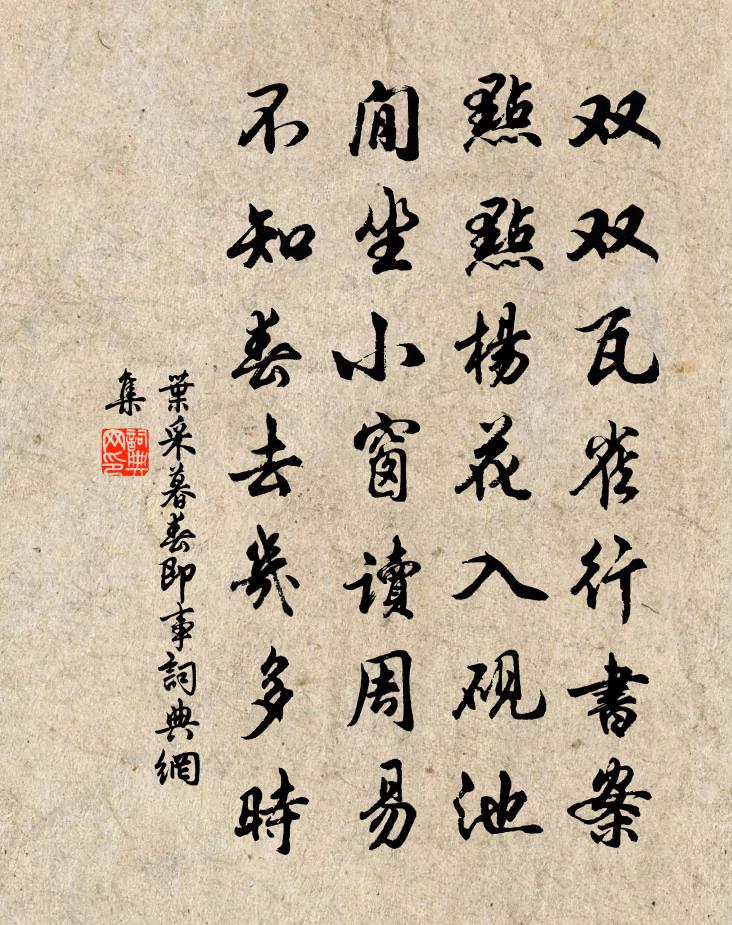 双双瓦雀行書案
點點楊花入硯池
閒坐小窗讀周易
不知春去幾多時
葉采暮春即事詞典網
集
詞典
网印